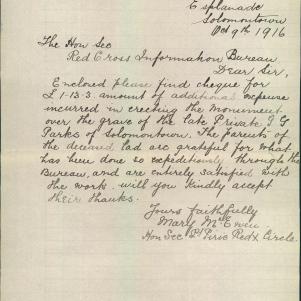 Esplanade
Solomontown
Oct 9th 1916
The Hon Sec
Red Cross Information Bureau
Dear Sir,
Enclosed please find cheque for
£1-13-3. amount of additional expense
incurred in erecting the monument
over the grave of the late Private J G
Parks of Solomontown. The parents of
the deceased lad are grateful for what
has been done so expeditiously through the
Bureau, and are entirely satisfied with
the work. will you kindly accept
their thanks.
Yours faithfully
Mary McEwen.
Hon Sec Pt Pirie Red X Circle.